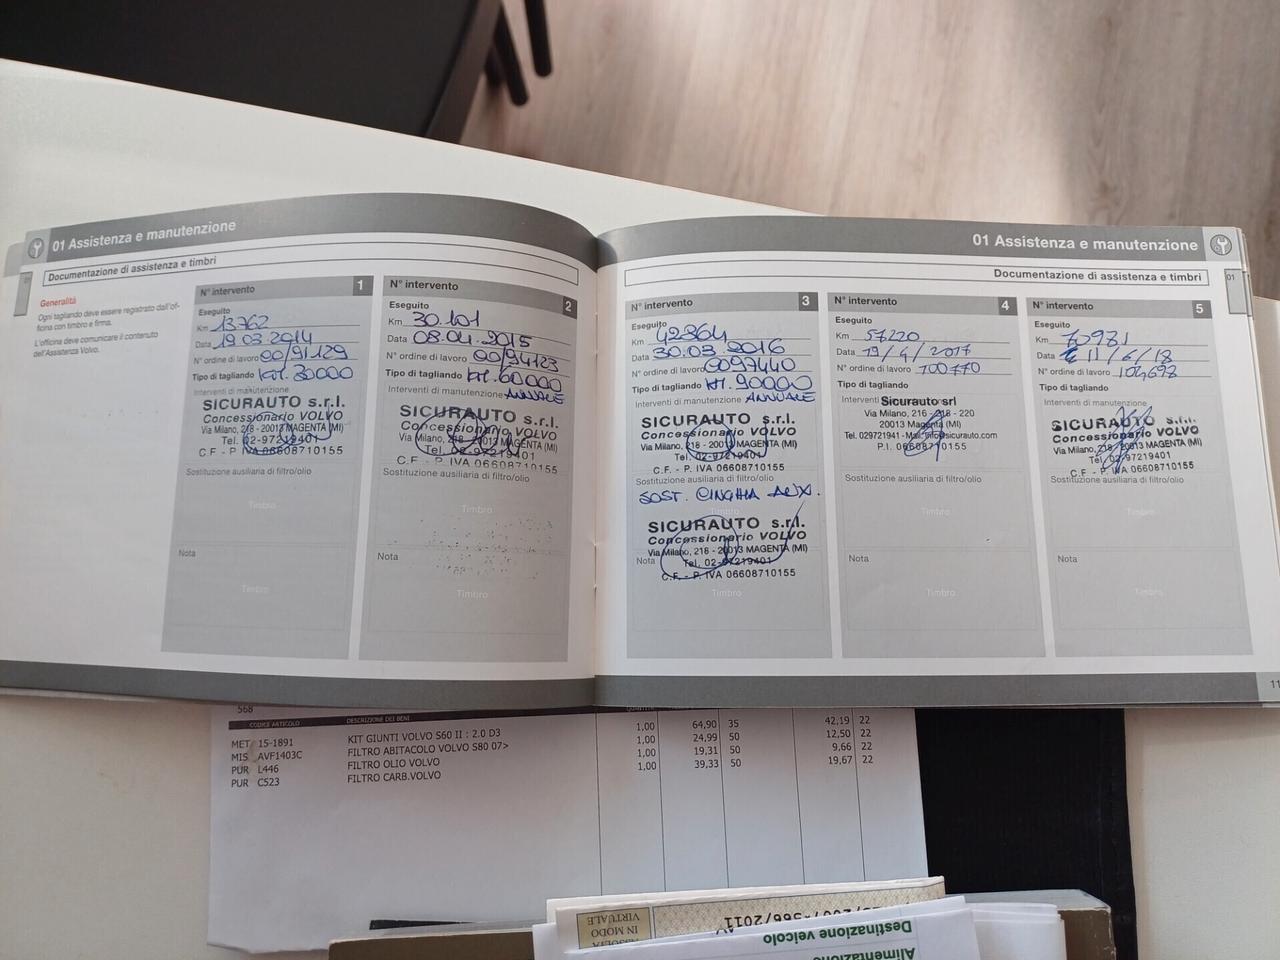 01 Assistenza e manutenzione
Documentazione di assistenza e timbri
Generalità
Ogni tagliando deve essere registrato dall'of-
ficina con timbro e firma.
L'officina deve comunicare il contenuto
dell'Assistenza Volvo.
N° intervento 1
Eseguito
Km 13762
Data 19 03 2014
N° ordine di lavoro 00/91129
Tipo di tagliando km. 30000
Interventi di manutenzione
SICURAUTO s.r.l.
Concessionario VOLVO
Via Milano, 218 - 20013 MAGENTA (MI)
Tel. 02-97219401
C.F. - P. IVA 06608710155
Sostituzione ausiliaria di filtro/olio
Timbro
Nota
Timbro
N° intervento 2
Eseguito
Km 30.101
Data 08.04.2015
N° ordine di lavoro 00/94123
Tipo di tagliando km. 60000
Interventi di manutenzione ANNUALE
SICURAUTO s.r.l.
Concessionario VOLVO
Via Milano, 218 - 20013 MAGENTA (MI)
Tel. 02-97219401
C.F. - P. IVA 06608710155
Sostituzione ausiliaria di filtro/olio
Timbro
Nota
Timbro
01 Assistenza e manutenzione
Documentazione di assistenza e timbri
01
N° intervento 3
Eseguito
Km 42864
Data 30.03.2016
N° ordine di lavoro 0097440
Tipo di tagliando km. 90000
Interventi di manutenzione ANNUALE
SICURAUTO s.r.l.
Concessionario VOLVO
Via Milano, 218 - 20013 MAGENTA (MI)
Tel. 02-97219401
C.F. - P. IVA 06608710155
Sostituzione ausiliaria di filtro/olio
SOST. CINGHIA AUX.
Timbro
SICURAUTO s.r.l.
Concessionario VOLVO
Via Milano, 218 - 20013 MAGENTA (MI)
Nota Tel. 02-97219401
C.F. - P. IVA 06608710155
Timbro
N° intervento 4
Eseguito
Km 57220
Data 19/4/2017
N° ordine di lavoro 100770
Tipo di tagliando
Interventi di manutenzione
Sicurauto srl
Via Milano, 216 - 218 - 220
20013 Magenta (MI)
Tel. 029721941 - Mail: info@sicurauto.com
P.I. 06608710155
Sostituzione ausiliaria di filtro/olio
Timbro
Nota
Timbro
N° intervento 5
Eseguito
Km 70981
Data 11/6/18
N° ordine di lavoro 104698
Tipo di tagliando
Interventi di manutenzione
SICURAUTO s.r.l.
Concessionario VOLVO
Via Milano, 218 - 20013 MAGENTA (MI)
Tel. 02-97219401
C.F. - P. IVA 06608710155
Sostituzione ausiliaria di filtro/olio
Timbro
Nota
Timbro
11
568
CODICE ARTICOLO DESCRIZIONE DEI BENI
MET 15-1891 KIT GIUNTI VOLVO S60 II : 2.0 D3 1,00 64,90 35 42,19 22
MIS AVF1403C FILTRO ABITACOLO VOLVO S80 07> 1,00 24,99 50 12,50 22
PUR L446 FILTRO OLIO VOLVO 1,00 19,31 50 9,66 22
PUR C523 FILTRO CARB.VOLVO 1,00 39,33 50 19,67 22
ASSOLTA
IN MODO
VIRTUALE
2007*566/2011
Destinazione veicolo
Alimentazione